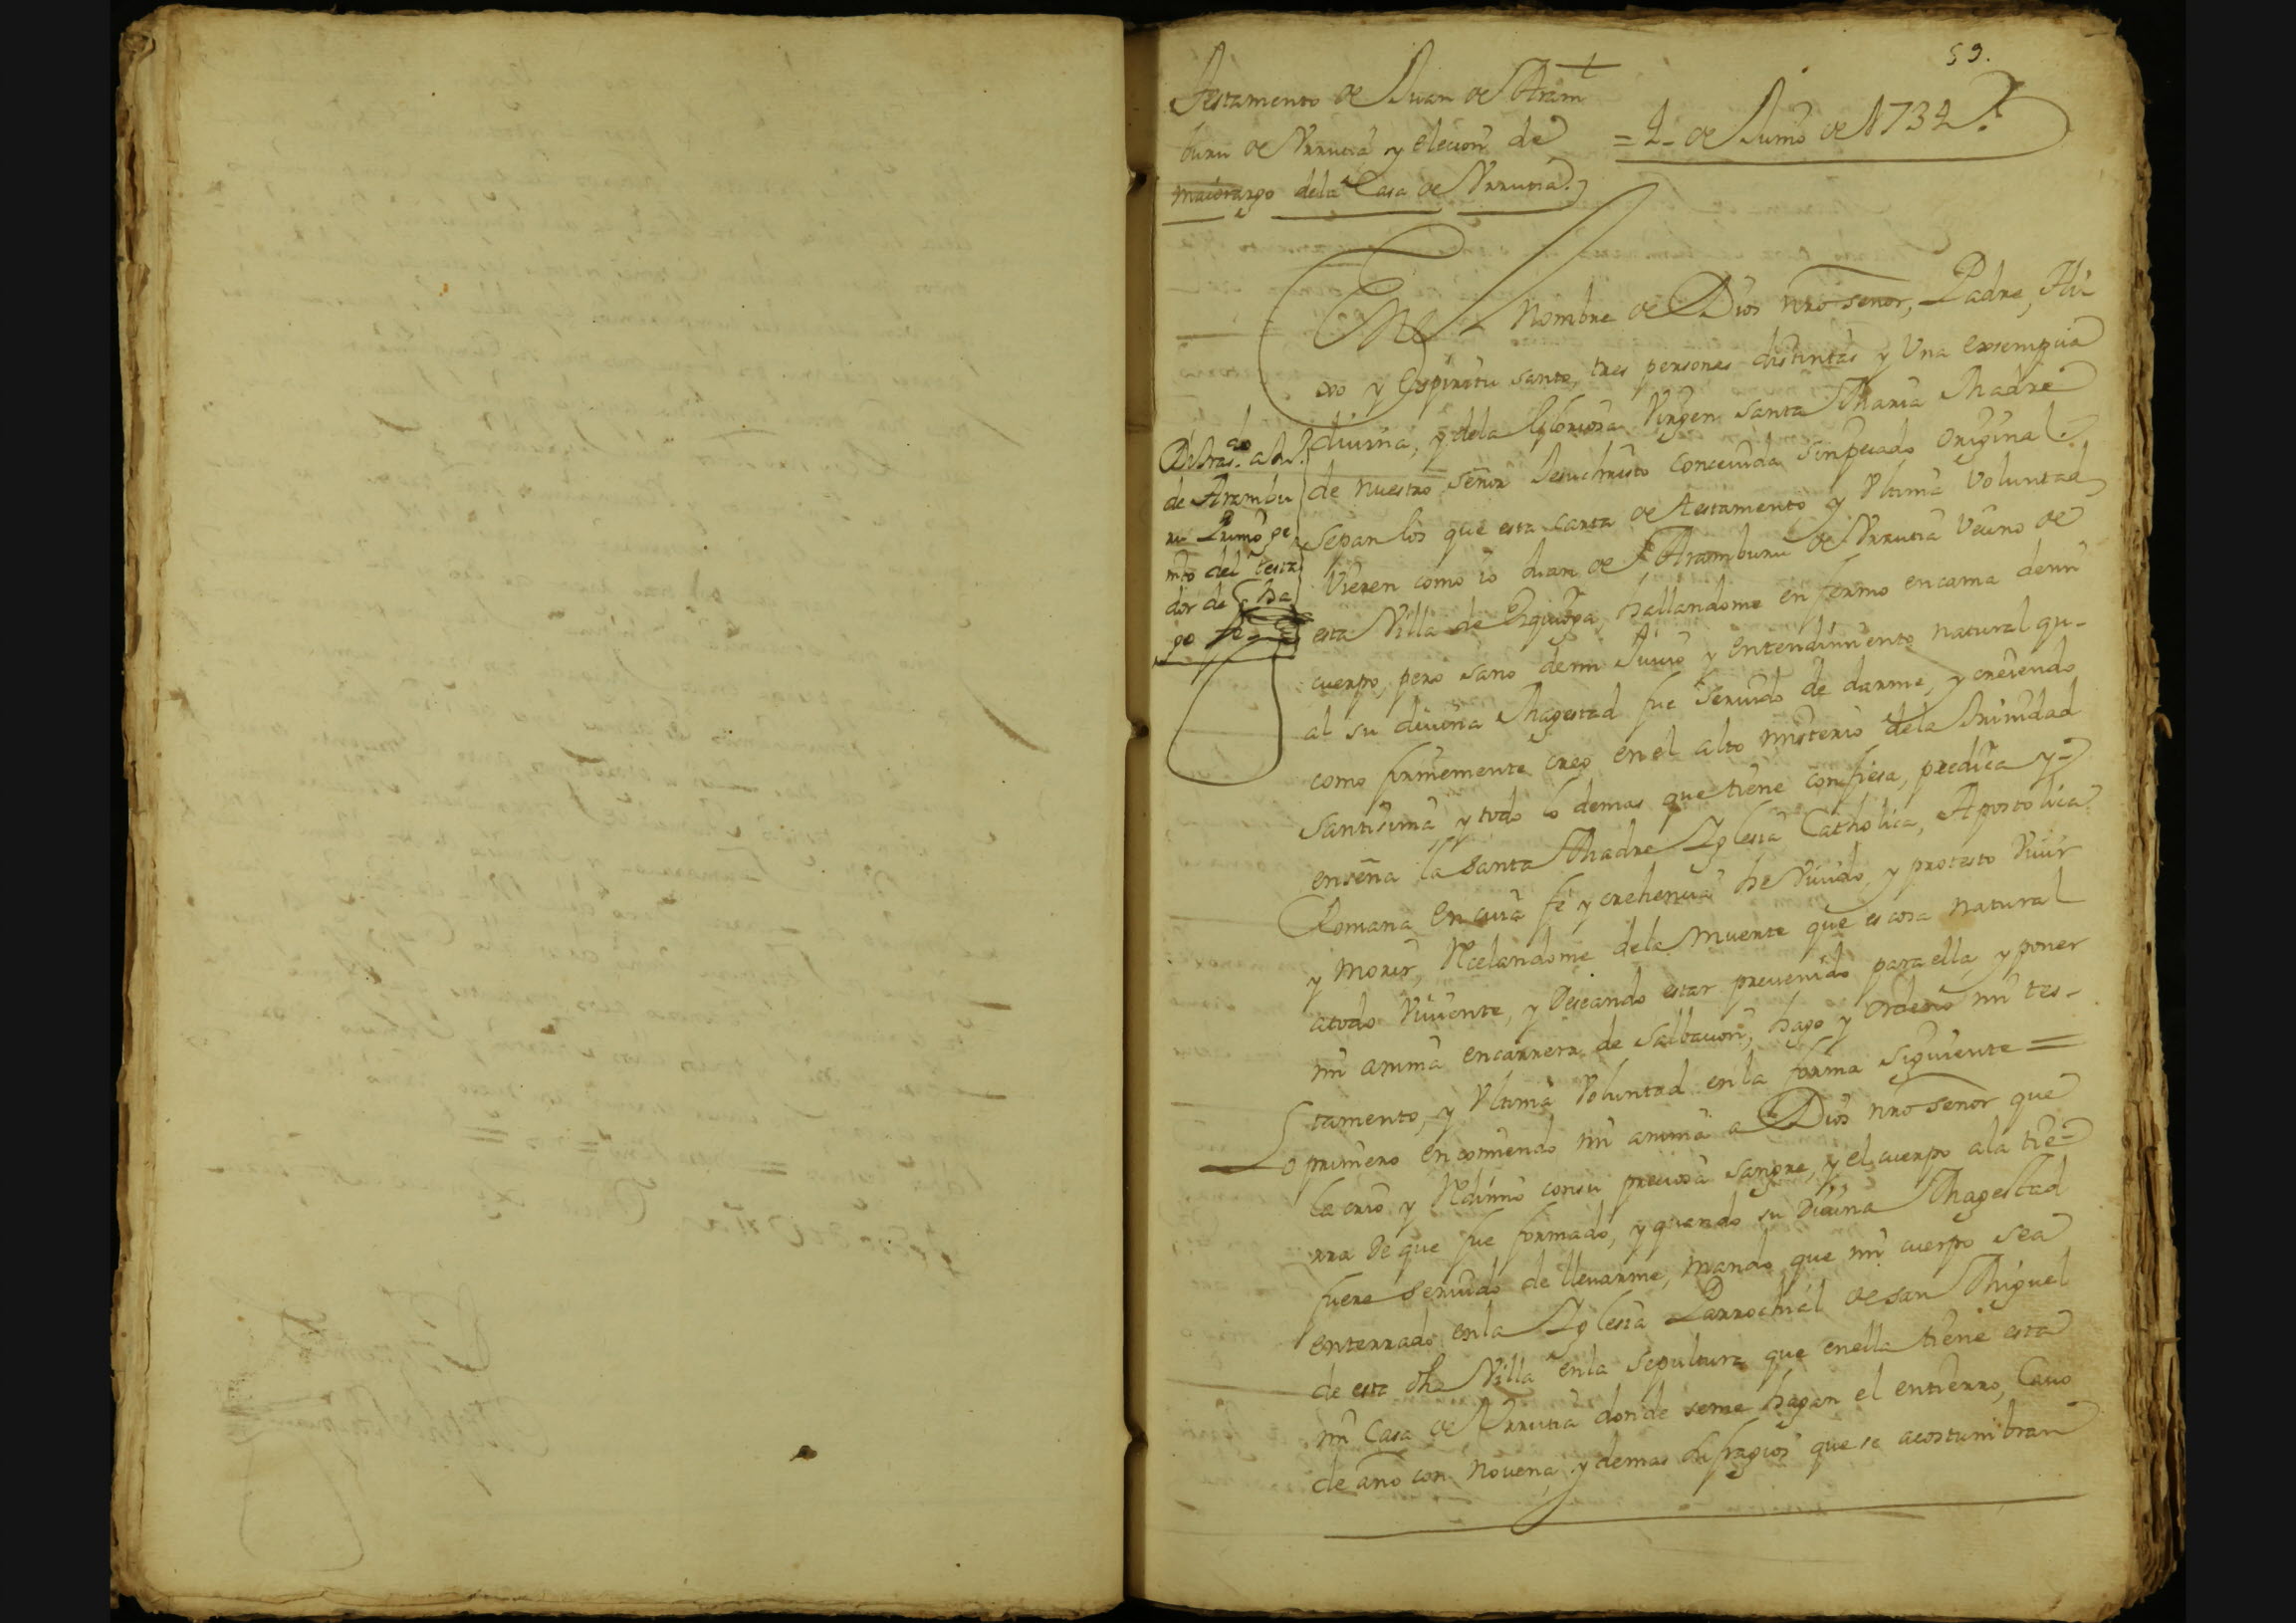 59.
Testamento de Juan de Aram
buru de Vrrutia y elecion de
maiorazgo dela Casa de Vrrutia.
= 2 - de Junio de 1732
En el Nombre de Dios nro señor, Padre, Hi-
xo y Espiritu santo, tres personas distintas y Una exsempcia
diuina, y dela Gloriosa Virgen santa Maria Madre
de nuestro señor Jesuchristo conceuida sin pecado Original.
Sepan los que esta carta de testamento y Vltima Voluntad
Vieren como io Juan de Aramburu de Vrrutia Vecino de
esta Villa de Ezquioga, hallandome enfermo en cama de mi
cuerpo, pero sano de mi Juicio y entendimiento natural qu-
al su diuina Magestad fue seruido de darme, y creiendo
como firmemente creo en el alto misterio dela trinidad
Santisima y todo lo demas que tiene confiesa, predica y
enseña la Santa Madre Iglesia Catholica, Apostolica
Romana en cuia fe y crehencia he Viuido, y protesto Viuir
y Morir, Rcelandome dela Muerte que es cosa natural
atodo Viuiente, y Deseando estar preuenido para ella, y poner
mi anima encarrera de Salbacion, hago y Ordeno mi tes-
tamento, y Vltima Voluntad en la forma Siguiente =
Lo primero encomiendo mi anima a Dios nro señor que
la crio y Rdimio consu preciosa Sangre, y el cuerpo ala tie-
rra De que fue formado, y quando su Diuina Magestad
fuere Seruido de lleuarme, mando que mi cuerpo sea
enterrado en la Iglesia Parrochial de san Miguel
de esta dha Villa en la Sepultura que enella tiene esta
mi Casa de Vrrutia donde seme hagan el entierro, Cauo
de año con Nouena, y demas sufragios que se acostumbran
de Arambu
ru Primo ge
nito del testa
dor de